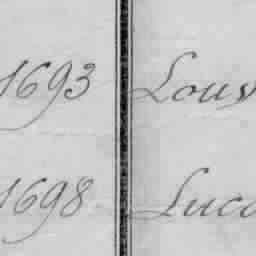 1693 Louv
1698 Luca